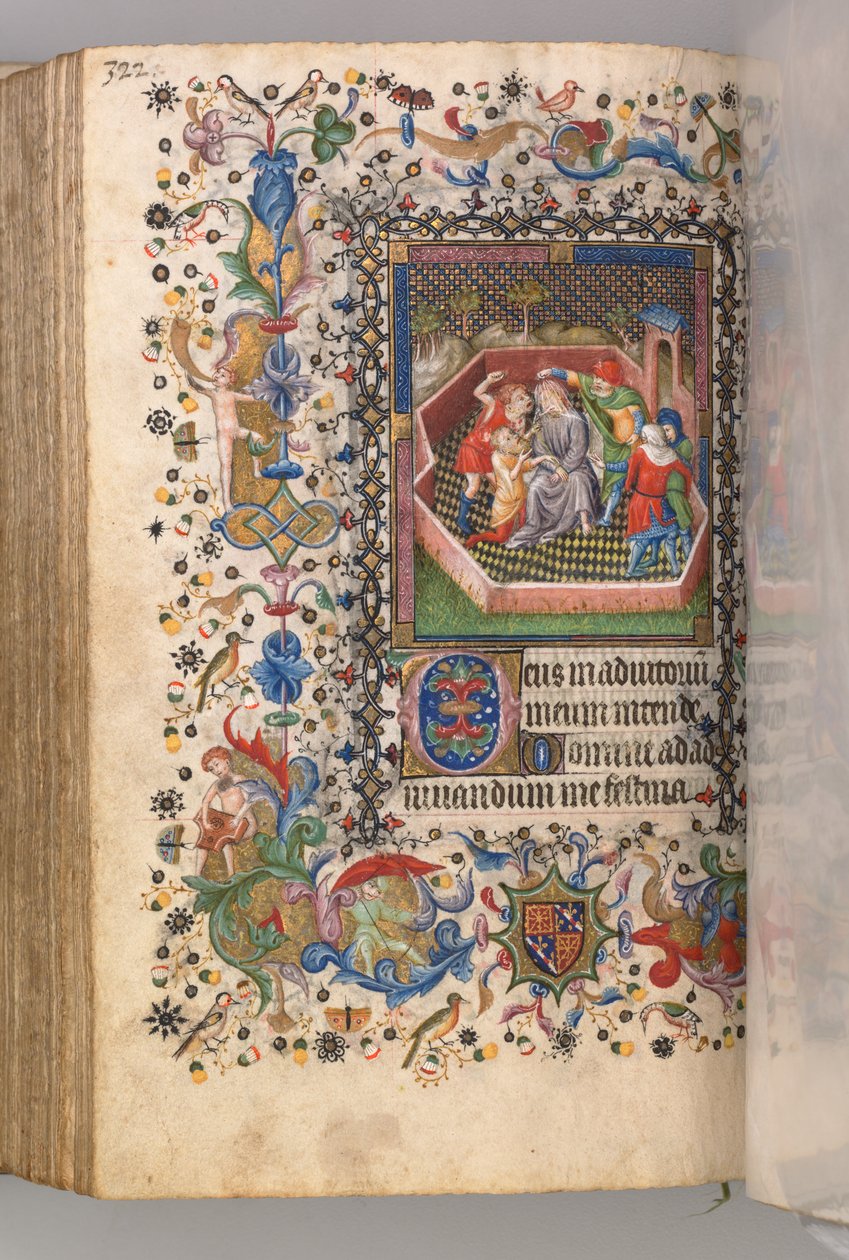 322
Deus in adiutoriū
meum intende
Domine ad ad
iuuandum me festina